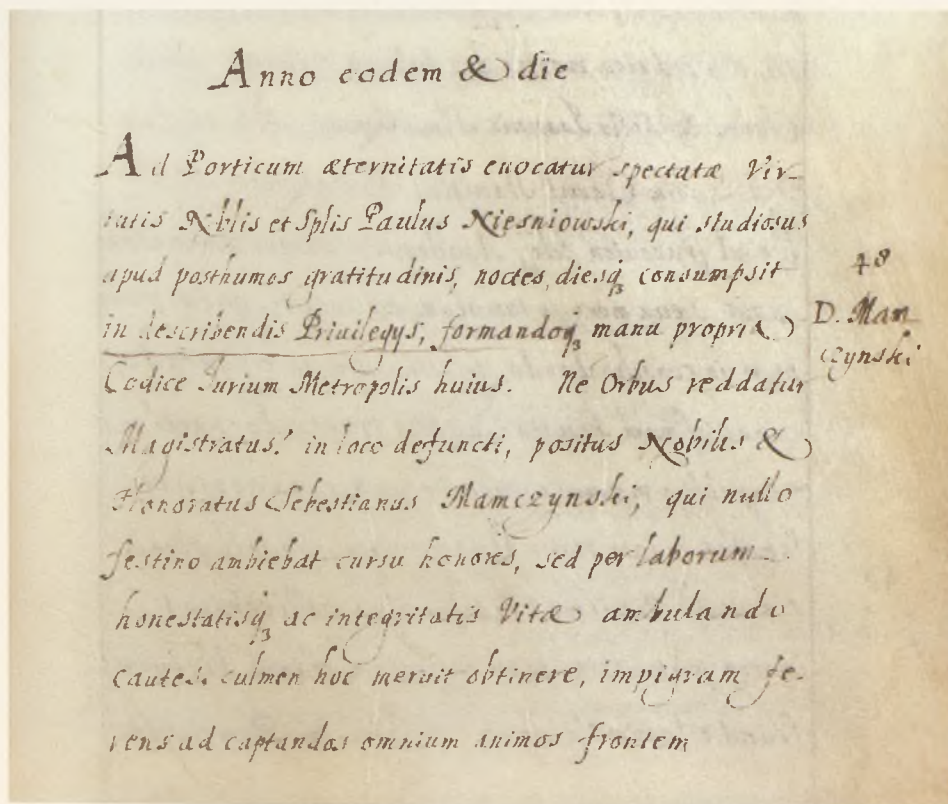 Anno eodem & die
Ad Porticum æternitatis euocatur spectatæ Vir-
tutis Nblis et Splis Paulus Niesniowski, qui studiosus
apud posthumos gratitudinis, noctes, diesq3 consumpsit
in describendis Priuilegys, formandoq3 manu propria
Codice Iurium Metropolis huius. Ne Orbus reddatur
Magistratus! in loco defuncti, positus Nobilis &
Honoratus Sebestianus Mamczynski, qui nullo
festino ambiebat cursu honores, sed per laborum
honestatisq3 ac integritatis Vitæ ambulando
cautes. culmen hoc meruit obtinere, impigram fe-
rens ad captandos omnium animos frontem
48
D. Mam
czynski